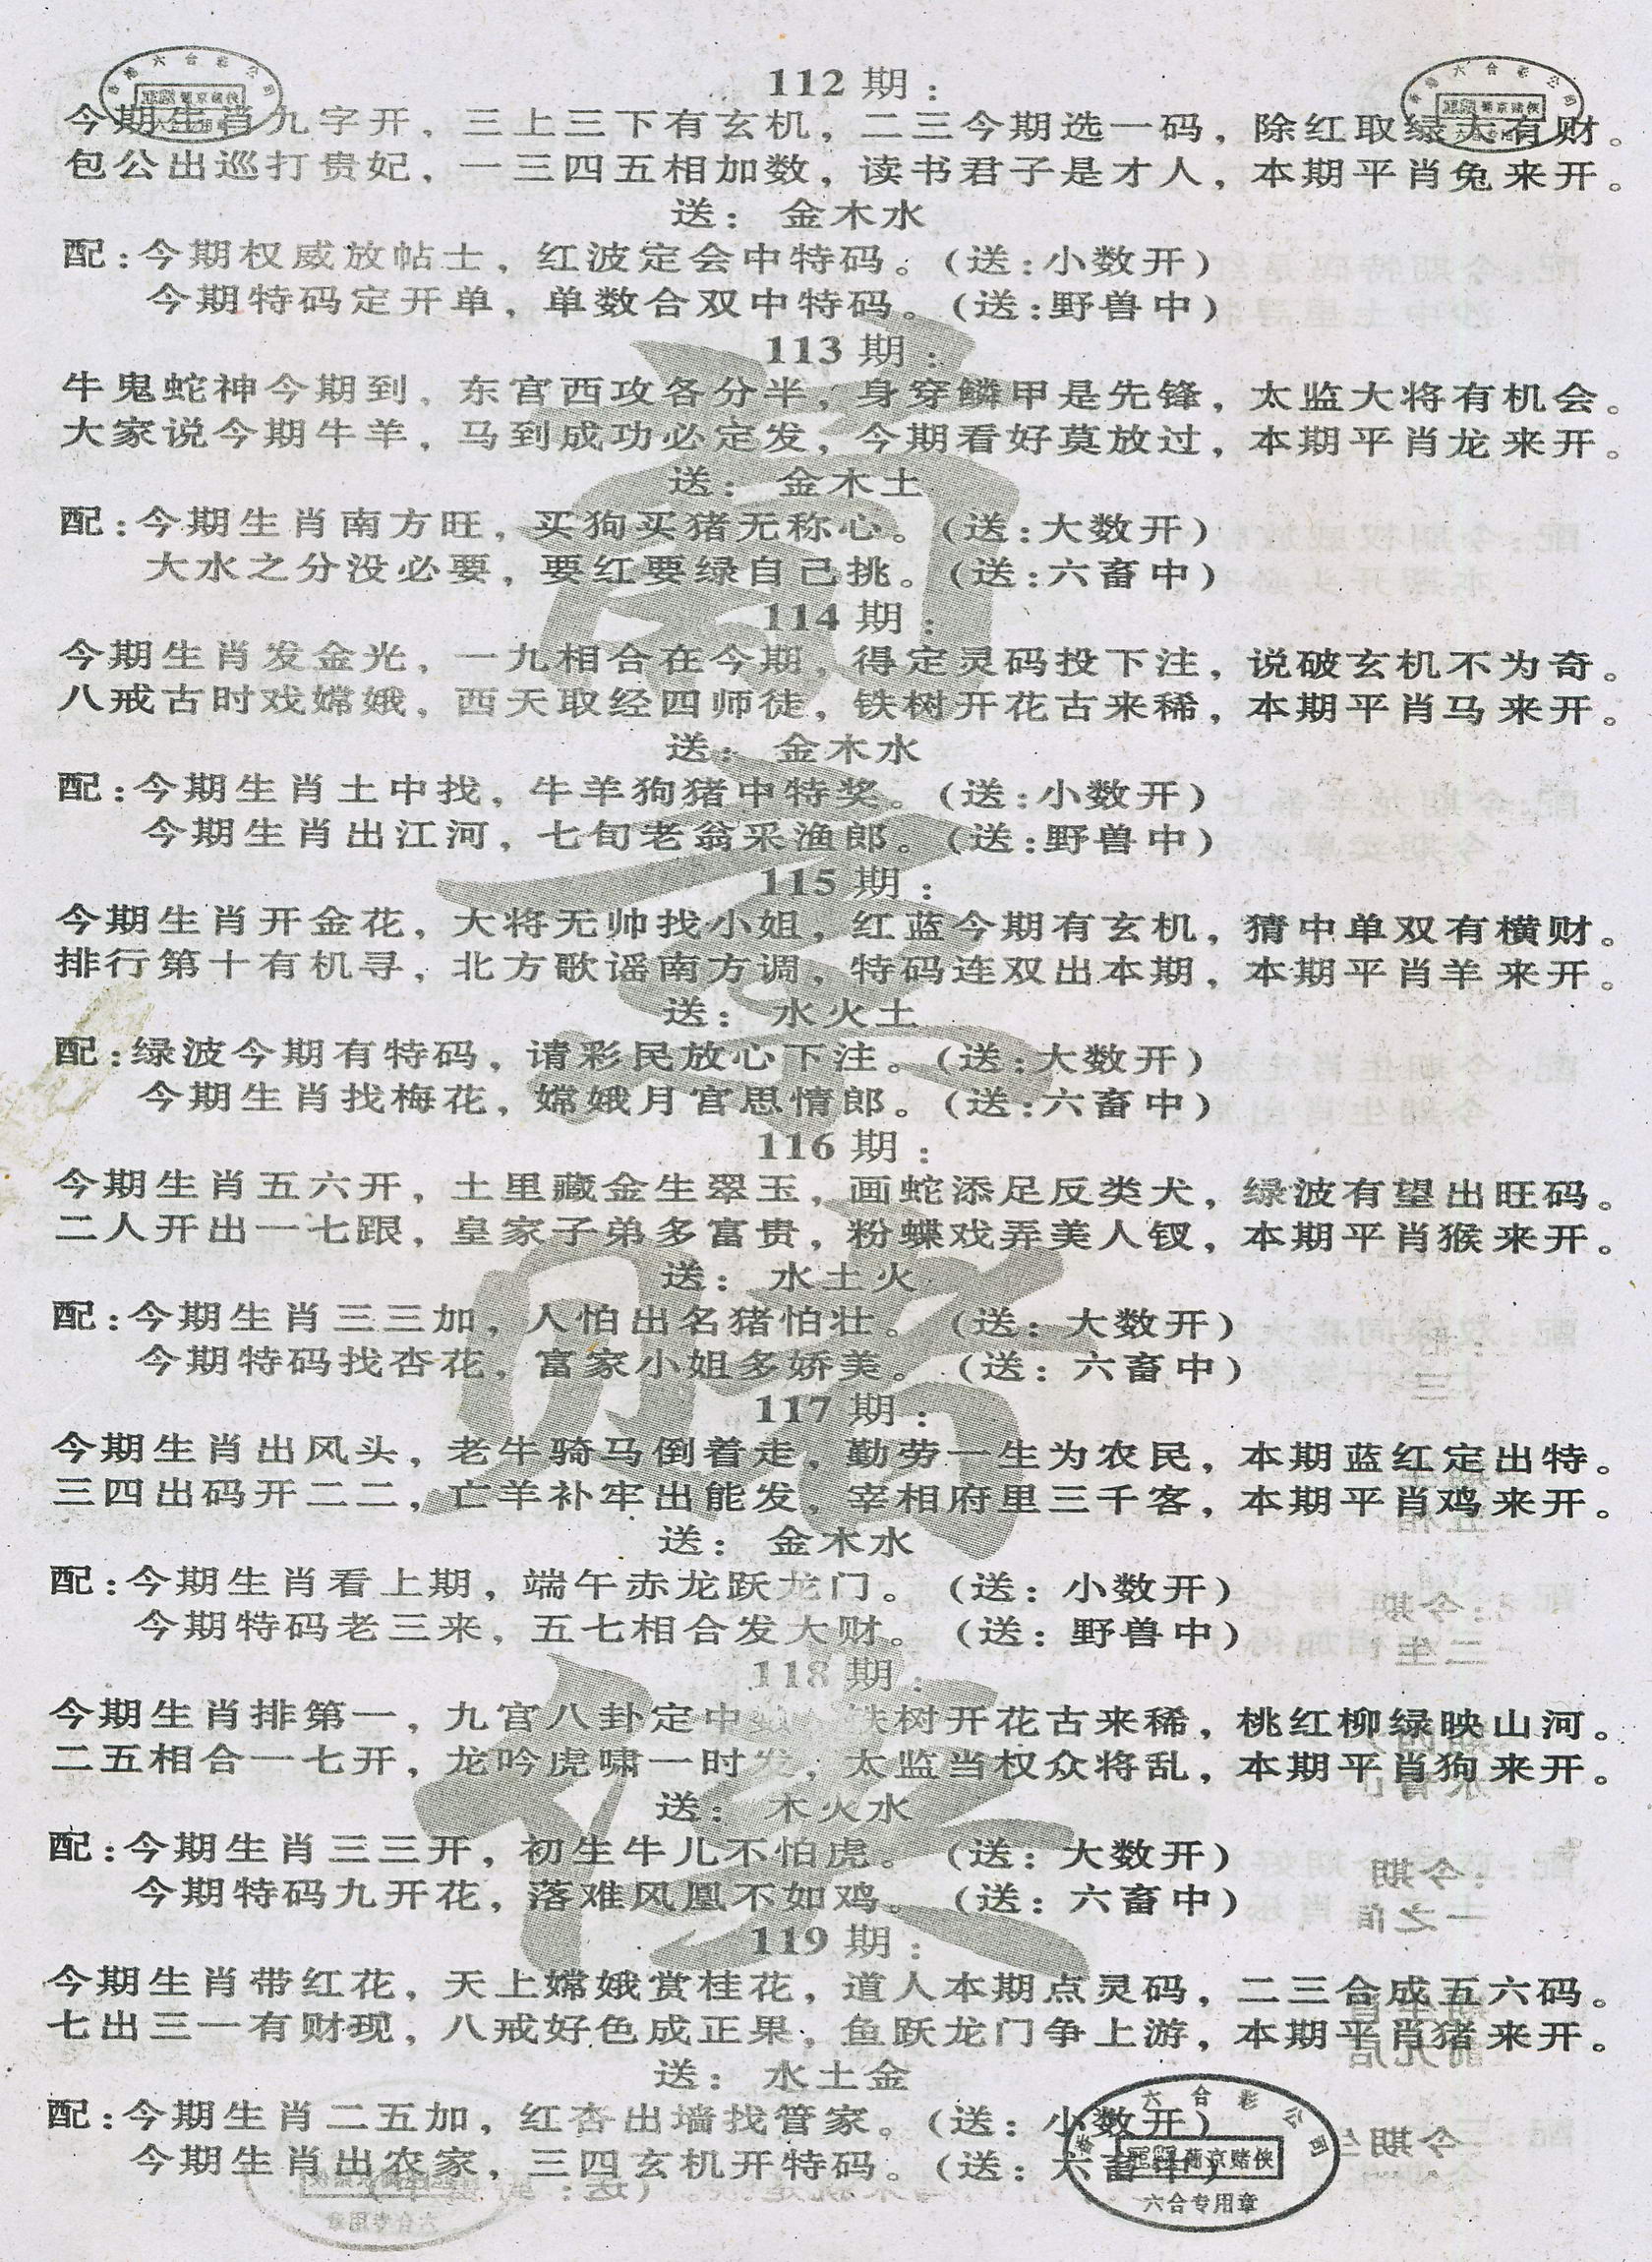 112 期:
今期生肖九字开，三上三下有玄机，二三今期选一码，除红取绿大有财。
包公出巡打贵妃，一三四五相加数，读书君子是才人，本期平肖兔来开。
送: 金木水
配:今期权威放帖士，红波定会中特码。(送:小数开)
今期特码定开单，单数合双中特码。(送:野兽中)
113 期:
牛鬼蛇神今期到，东宫西攻各分半，身穿鳞甲是先锋，太监大将有机会。
大家说今期牛羊，马到成功必定发，今期看好莫放过，本期平肖龙来开。
送: 金木土
配:今期生肖南方旺，买狗买猪无称心。(送:大数开)
大水之分没必要，要红要绿自己挑。(送:六畜中)
114 期:
今期生肖发金光，一九相合在今期，得定灵码投下注，说破玄机不为奇。
八戒古时戏嫦娥，西天取经四师徒，铁树开花古来稀，本期平肖马来开。
送: 金木水
配:今期生肖土中找，牛羊狗猪中特奖。(送:小数开)
今期生肖出江河，七旬老翁采渔郎。(送:野兽中)
115 期:
今期生肖开金花，大将无帅找小姐，红蓝今期有玄机，猜中单双有横财。
排行第十有机寻，北方歌谣南方调，特码连双出本期，本期平肖羊来开。
送: 水火土
配:绿波今期有特码，请彩民放心下注。(送:大数开)
今期生肖找梅花，嫦娥月宫思情郎。(送:六畜中)
116 期:
今期生肖五六开，土里藏金生翠玉，画蛇添足反类犬，绿波有望出旺码。
二人开出一七跟，皇家子弟多富贵，粉蝶戏弄美人钗，本期平肖猴来开。
送: 水土火
配:今期生肖三三加，人怕出名猪怕壮。(送: 大数开)
今期特码找杏花，富家小姐多娇美。(送: 六畜中)
117 期:
今期生肖出风头，老牛骑马倒着走，勤劳一生为农民，本期蓝红定出特。
三四出码开二二，亡羊补牢出能发，宰相府里三千客，本期平肖鸡来开。
送: 金木水
配:今期生肖看上期，端午赤龙跃龙门。(送: 小数开)
今期特码老三来，五七相合发大财。(送: 野兽中)
118 期:
今期生肖排第一，九宫八卦定中数，铁树开花古来稀，桃红柳绿映山河。
二五相合一七开，龙吟虎啸一时发，太监当权众将乱，本期平肖狗来开。
送: 木火水
配:今期生肖三三开，初生牛儿不怕虎。(送: 大数开)
今期特码九开花，落难凤凰不如鸡。(送: 六畜中)
119 期:
今期生肖带红花，天上嫦娥赏桂花，道人本期点灵码，二三合成五六码。
七出三一有财现，八戒好色成正果，鱼跃龙门争上游，本期平肖猪来开。
送: 水土金
配:今期生肖二五加，红杏出墙找管家。(送: 小数开)
今期生肖出农家，三四玄机开特码。(送: 六畜中)
六合彩公司
葡京赌侠
六合专用章